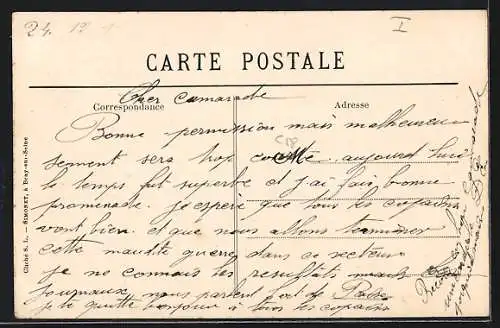 24 12
I
CARTE POSTALE
Correspondance
Adresse
Cher camarade
Bonne permission mais malheureu
sement sera trop courte aujourd hui
le temps fut superbe et j'ai fais bonne
promenade. j'espère que tous les copains
vont bien et que nous allons terminer
cette maudite guerre dans ce secteur
je ne connais les resultats mais
journaux nous parlent fort de
je te quitte bonjour à tous les copains
Cliché S. L. — SIMONET, à Bray-sur-Seine